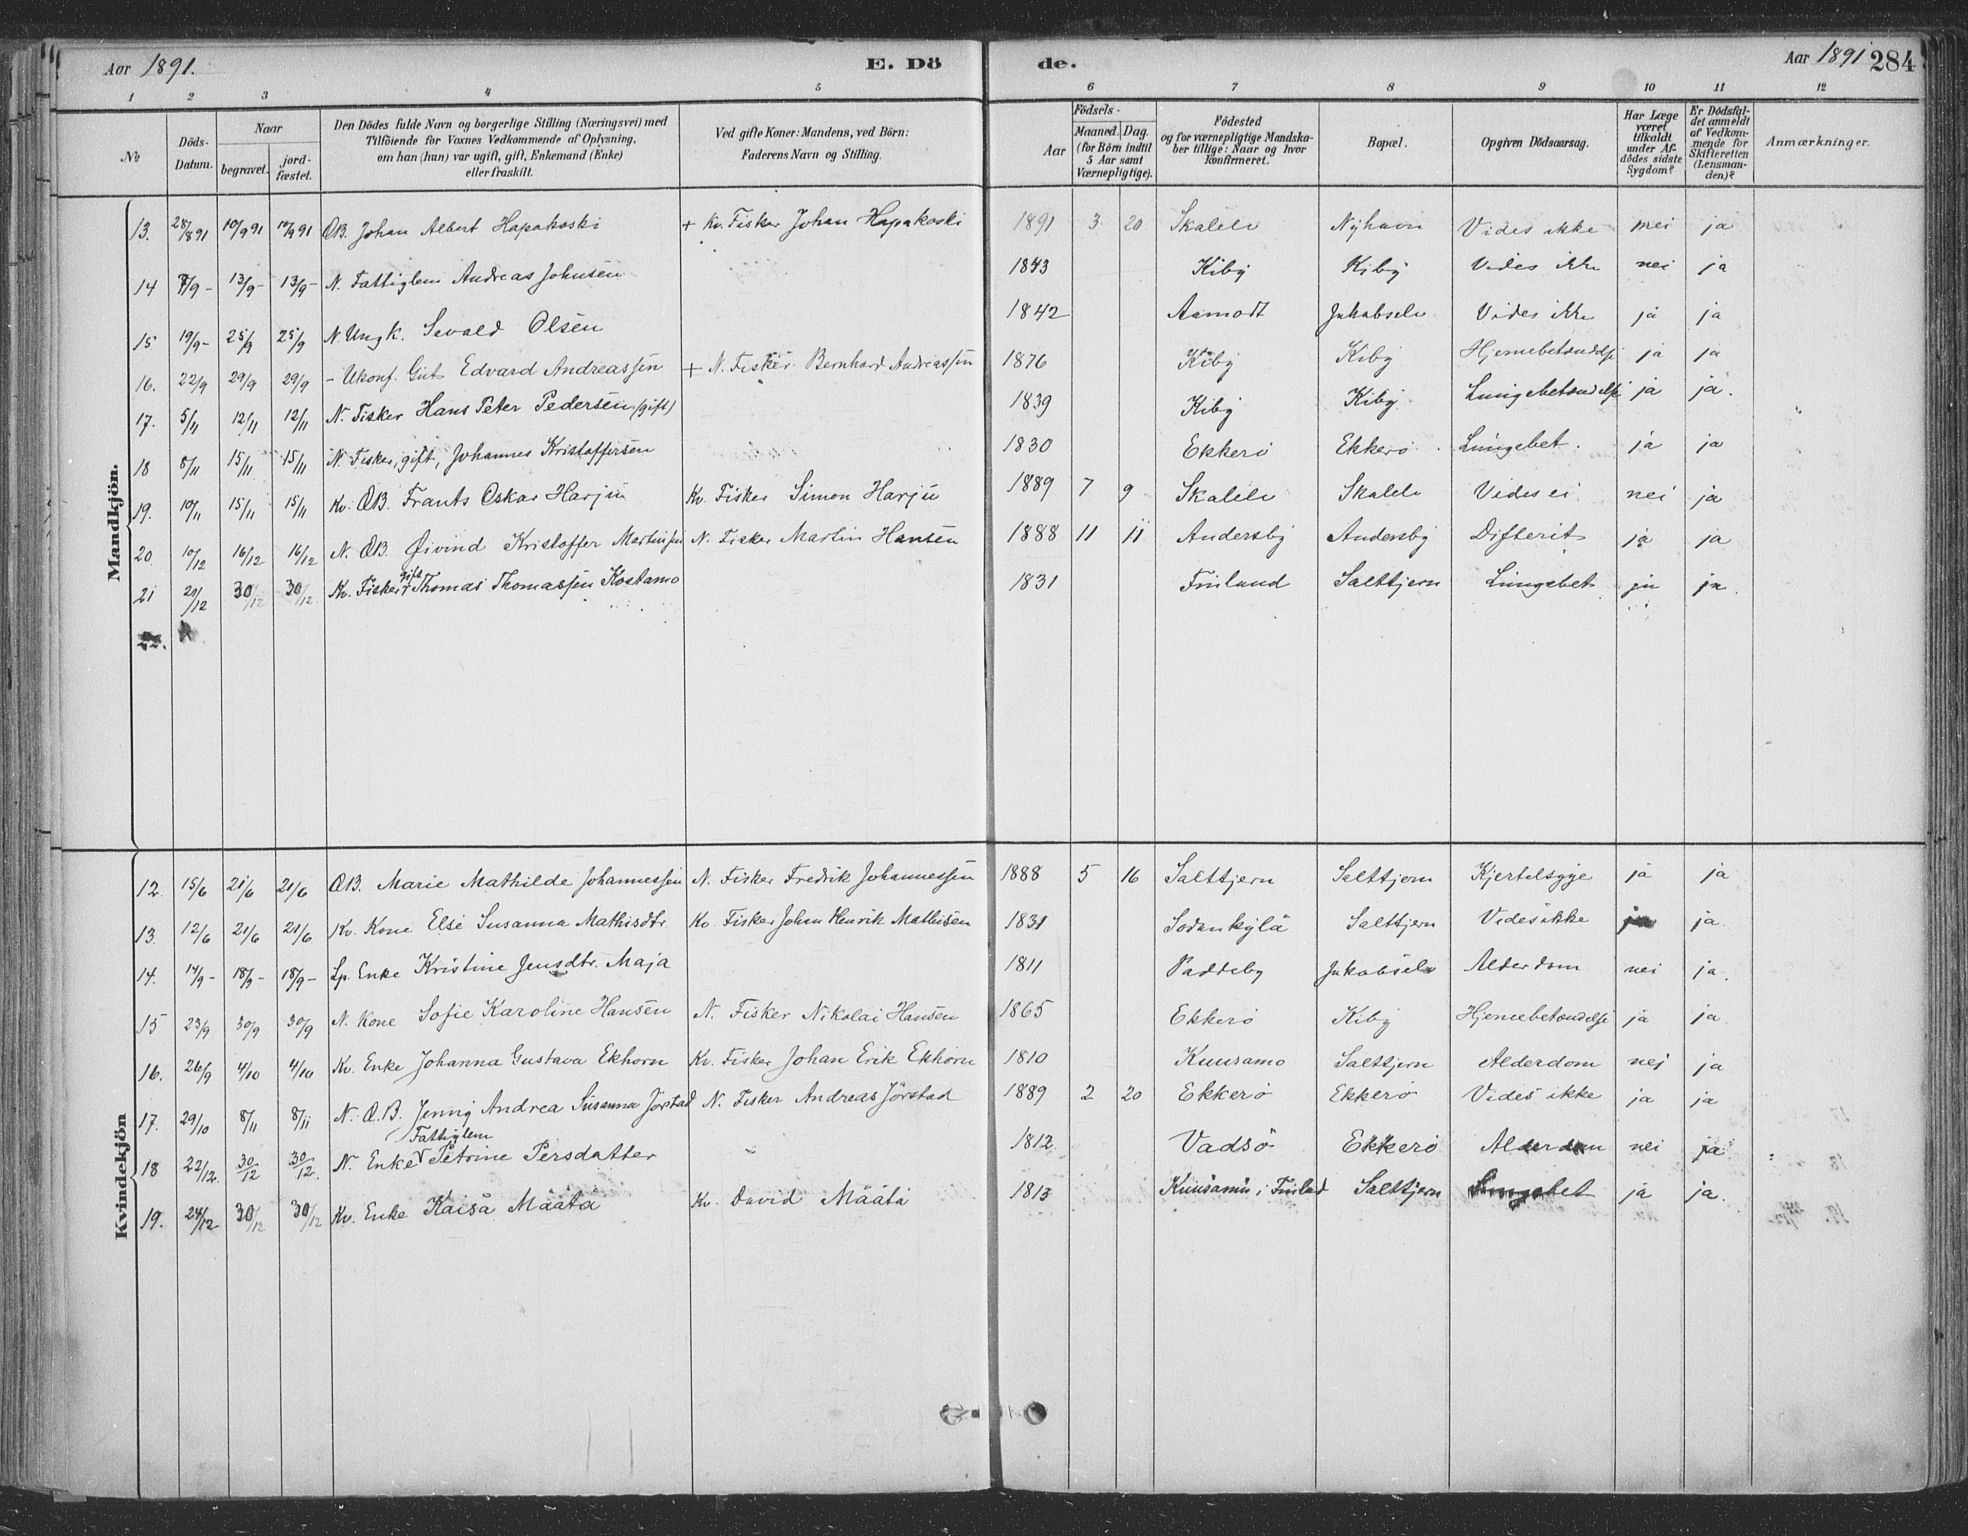 Aar 1891. E. Dö de. Aar 1891 284
1 2 3 4 5 6 7 8 9 10 11 12
№ Döds-Datum. Naar begravet. jord-fæstet. Den Dödes fulde Navn og borgerlige Stilling (Næringsvei) med Tilföiende for Voxnes Vedkommende af Oplysning, om han (hun) var ugift, gift, Enkemand (Enke) eller fraskilt. Ved gifte Koner: Mandens, ved Börn: Faderens Navn og Stilling. Födsels- Aar Maaned. Dag. (for Börn indtil 5 Aar samt Værnepligtige). Födested og for værnepligtige Mandskaber tillige: Naar og hvor konfirmeret. Bopæl. Opgiven Dödsaarsag. Har Læge været tilkaldt under Afdödes sidste Sygdom? Er Dödsfaldet anmeldt af Vedkommende for Skifteretten (Lensmanden)? Anmærkninger.
Mandkjön.
13. 28/8 91 10/9 91 10/9 91 ÆB. Johan Albert Hapakoski + Kv. Fisker Johan Hapakoski 1891 3 20 Skalelv Nyhavn Vides ikke nei ja
14 7/9 - 13/9 - 13/9 - N. Fattiglem Andreas Johnsen 1843 Kiby Kiby Vides ikke nei ja
15 19/9 - 25/9 25/9 N. Ungk. Sevald Olsen 1842 Aamodt Jakobselv Vides ikke ja ja
16. 22/9 29/9 29/9 - Ukonf. Gut Edvard Andreassen + N. Fisker Bernhard Andreassen 1876 Kiby Kiby Hjernebetændelse ja ja
17. 5/11 12/11 12/11 N. Fisker Hans Peter Pedersen (gift) 1839 Kiby Kiby Lungebetændelse ja ja.
18 8/11 15/11 15/11 N. Fisker, gift, Johannes Kristoffersen 1830 Ekkerö Ekkerö Lungebet. ja ja
19. 10/11 15/11 15/11 Kv. ÆB. Frants Oskar Harju Kv. Fisker Simon Harju 1889 7 9 Skalelv Skalelv Vides ei nei ja
20 10/12 16/12 16/12 N. ÆB. Øivind Kristoffer Martinsen N. Fisker Martin Hansen 1888 11 11 Andersby Andersby Difterit ja ja
21 20/12 30/12 30/12 Kv. Fisker gift Thomas Thomassen Kostamo 1831 Finland Salttjern Lungebet. ja ja.
22.
Kvindekjön
12. 15/6 21/6 21/6 ÆB. Marie Mathilde Johannessen N. Fisker Fredrik Johannessen 1888 5 16 Salttjern Salttjern Kjertelsyge ja ja
13. 12/6 21/6 21/6 Kv. Kone Else Susanna Mathisdtr Kv. Fisker Johan Henrik Mathisen 1831 Sodankylä Salttjern Vides ikke ja ja.
14. 14/9 - 18/9 - 18/9 - Lp. Enke Kristine Jensdtr. Maja 1811 Paddeby Jakobselv Alderdom nei ja.
15 23/9 30/9 30/9 N. Kone Sofie Karoline Hansen N. Fisker Nikolai Hansen 1865 Ekkerö Kiby Hjernebetændelse ja ja.
16. 26/9 4/10 4/10 Kv. Enke Johanna Gustava Ekhorn Kv. Fisker Johan Erik Ekhorn 1810 Kuusamo Salttjern Alderdom nej ja
17. 29/10 8/11 8/11 N. ÆB. Jenny Andrea Susanna Jörstad N. Fisker Andreas Jörstad 1889 2 20 Ekkerö Ekkerö Vides ikke ja ja
18 22/12. 30/12 30/12. N. Enke Fattiglem Petrine Persdatter 1812. Vadsö Ekkerö Alderdom nei ja
19. 24/12 30/12 30/12 Kv. Enke Kaisa Määtä Kv. David Määtä 1813 Kuusamo i Finland Salttjern Lungebet ja ja.